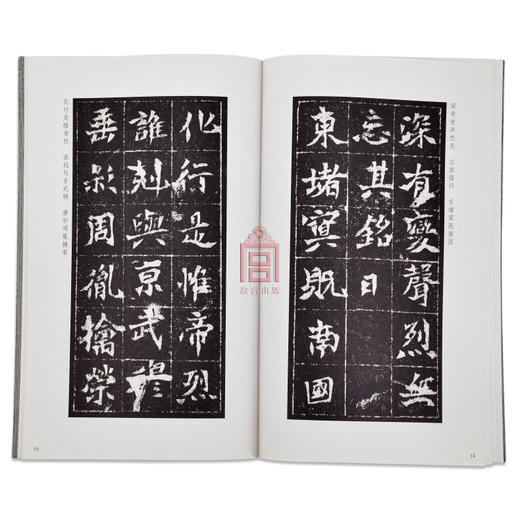 深有变声烈无 忘其铭曰 东堵寘既南国
深有變聲烈無
忘其銘曰
東堵寘既南國
14
化行是惟帝烈 谁剋与京武穆 垂彩周胤擒荣
化行是惟帝烈
誰剋與京武穆
垂彩周胤擒榮
15
故宫出版